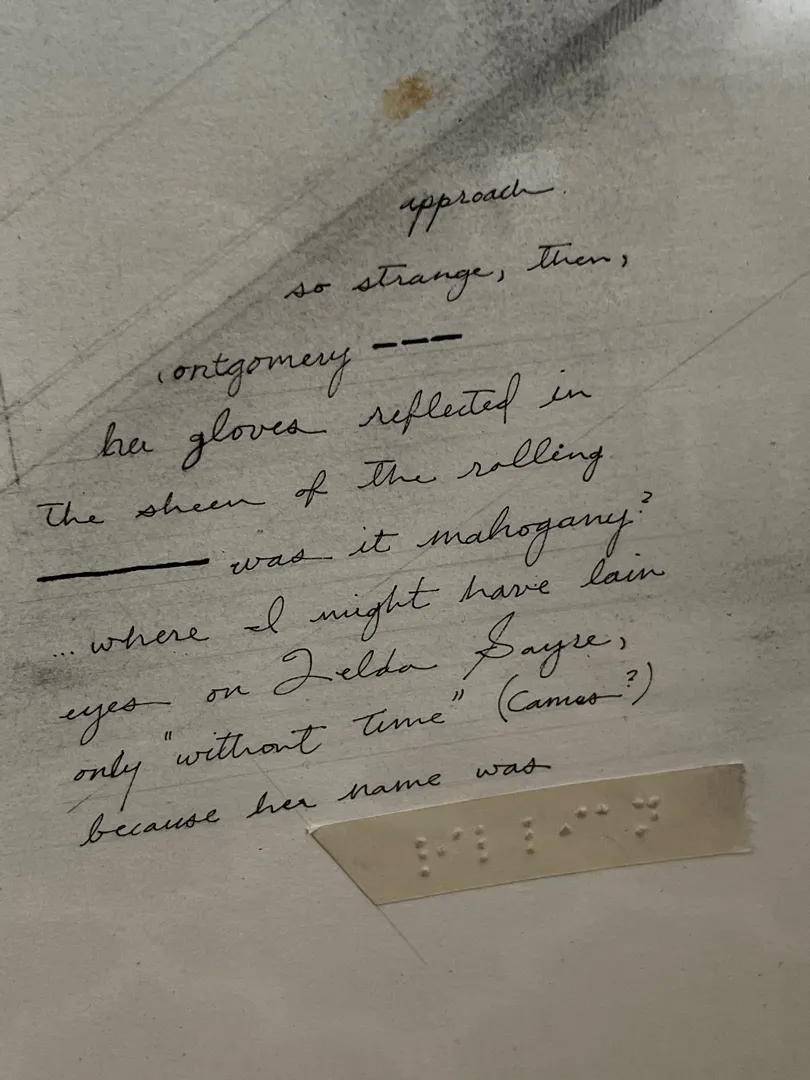 approach
so strange, then,
ontgomery ---
her gloves reflected in
the sheen of the rolling
______ was it mahogany?
...where I might have lain
eyes on Zelda Sayre,
only "without time" (Camus?)
because her name was